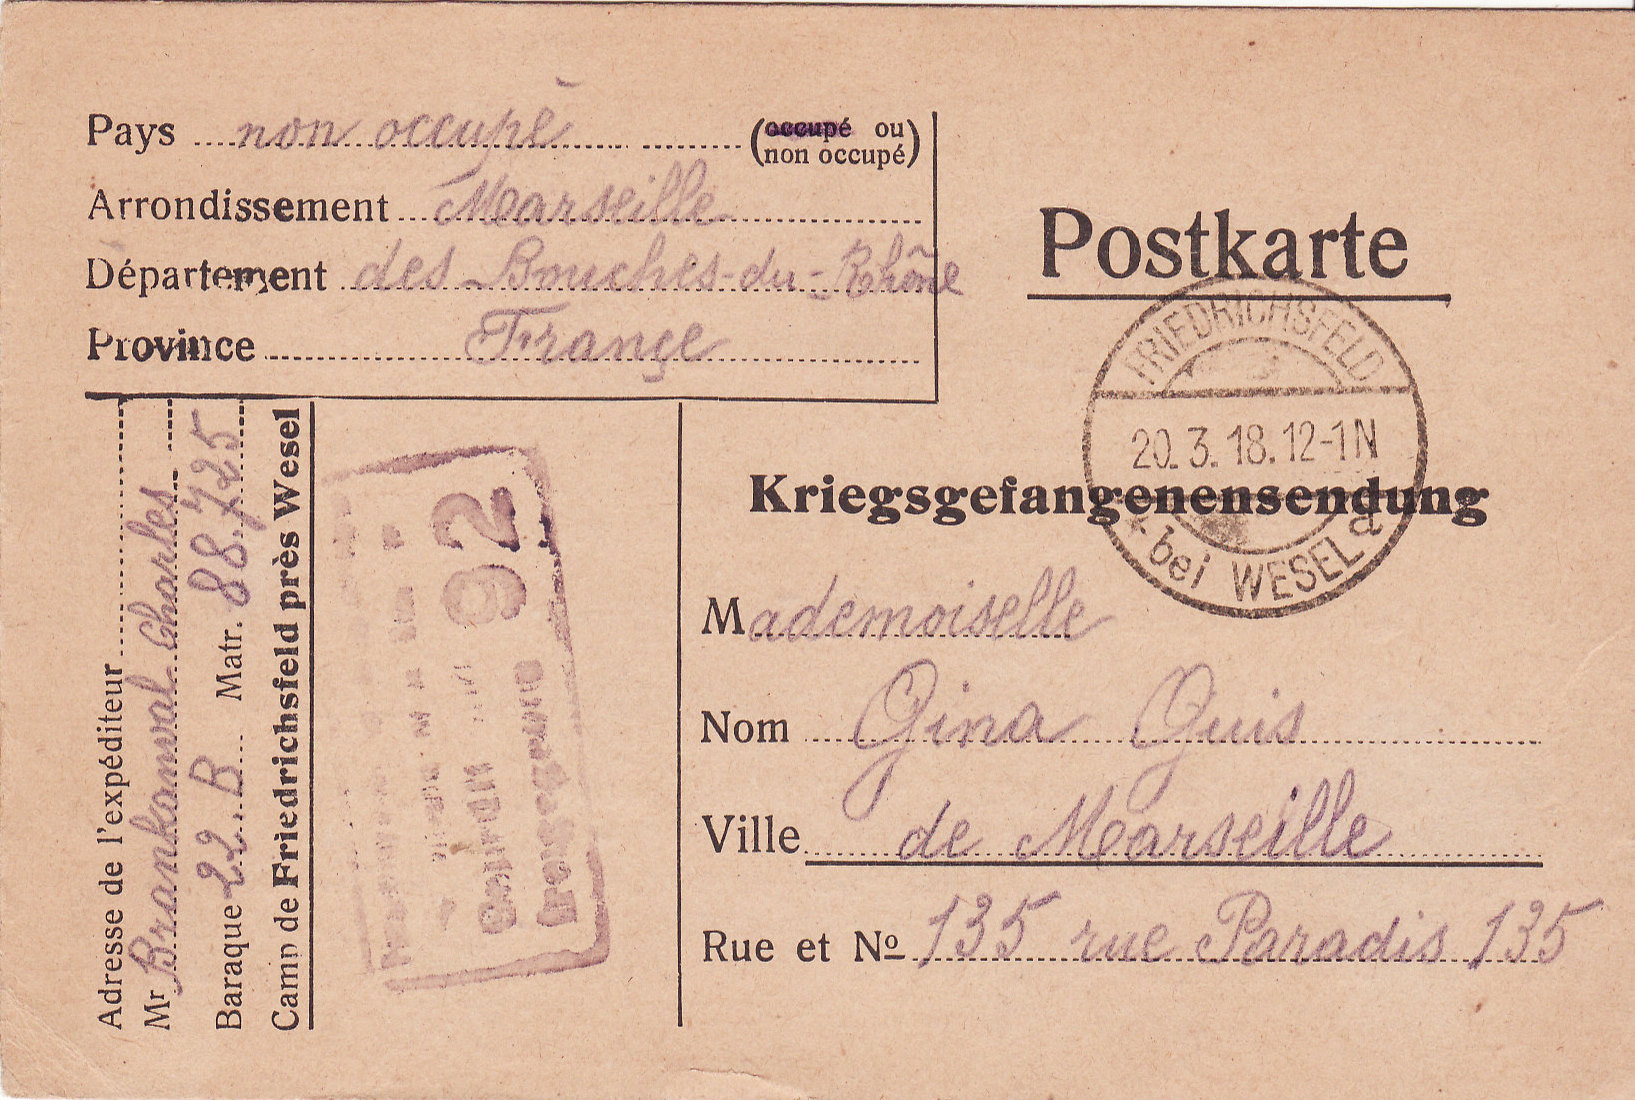 Pays non occupé (occupé ou
non occupé)
Arrondissement Marseille
Département des Bouches-du-Rhône
Province Françe
Postkarte
FRIEDRICHSFELD
20.3.18.12-1N
* bei WESEL a
Kriegsgefangenensendung
Mademoiselle
Nom Gina Guis
Ville de Marseille
Rue et Nº 135 rue Paradis 135
Adresse de l'expéditeur
Mr Charles
Baraque 22.B Matr. 88.725
Camp de Friedrichsfeld près Wesel
92